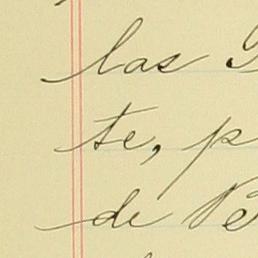 las
te, p
de Pe